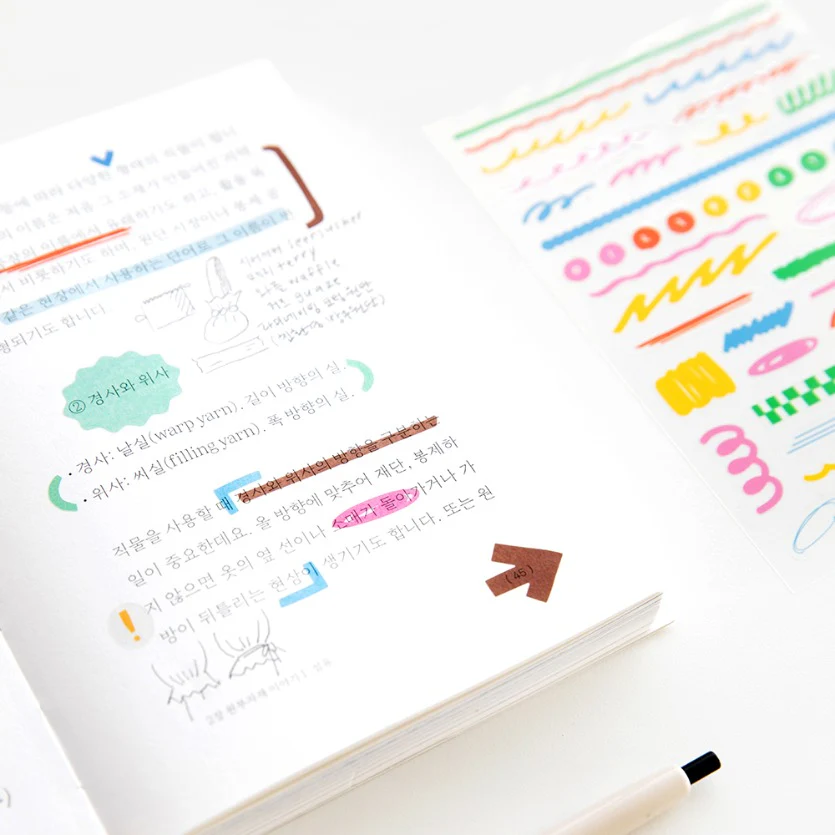 등에 따라 다양한 형태의 직물이 됩니
의 이름은 처음 그 소재가 만들어진 지역
공장의 이름에서 유래하기도 하고, 활용 목
서 비롯하기도 하며, 원단 시장이나 봉제 공
같은 현장에서 사용하는 단어로 그 이름이 변
형되기도 합니다.
② 경사와 위사
• 경사: 날실(warp yarn). 길이 방향의 실.
• 위사: 씨실(filling yarn). 폭 방향의 실.
직물을 사용할 때 경사와 위사의 방향을 구분하는
일이 중요한데요. 올 방향에 맞추어 재단, 봉제하
지 않으면 옷의 옆 선이나 소매가 돌아가거나 가
방이 뒤틀리는 현상이 생기기도 합니다. 또는 원
( 45 )